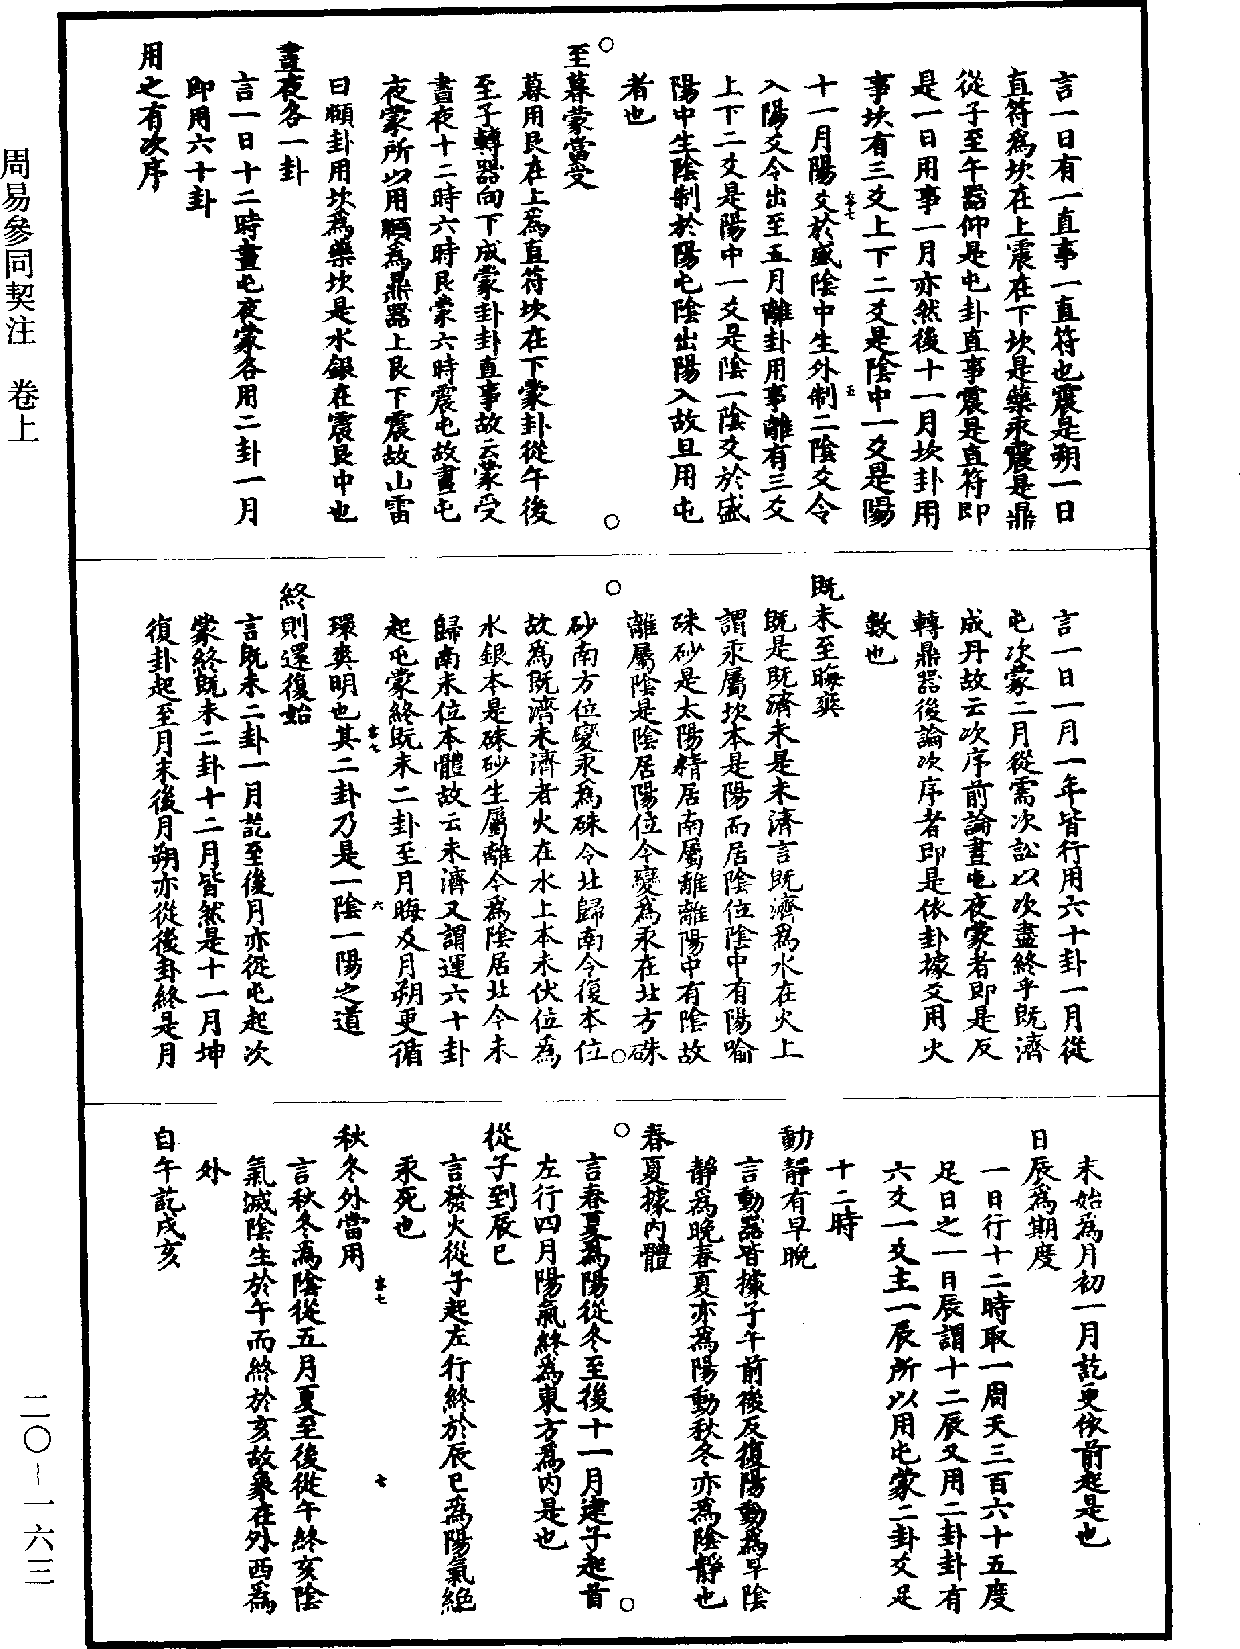 周易參同契注　卷上
二〇—一六三
言一日有一直事一直符也震是朔一日
直符為坎在上震在下坎是藥汞震是鼎
從子至午器仰是屯卦直事震是直符即
是一日用事一月亦然後十一月坎卦用
事坎有三爻上下二爻是陰中一爻是陽
十一月陽爻於盛陰中生外制二陰爻令
容七
五
入陽爻令出至五月離卦用事離有三爻
上下二爻是陽中一爻是陰一陰爻於盛
陽中生陰制於陽屯陰出陽入故旦用屯
者也
至暮蒙當受
暮用艮在上為直符坎在下蒙卦從午後
至子轉器向下成蒙卦卦直事故云蒙受
晝夜十二時六時艮蒙六時震屯故晝屯
夜蒙所以用頤為鼎器上艮下震故山雷
曰頤卦用坎為藥坎是水銀在震艮中也
晝夜各一卦
言一日十二時晝屯夜蒙各用二卦一月
即用六十卦
用之有次序
言一日一月一年皆行用六十卦一月從
屯次蒙二月從需次訟以次盡終乎既濟
成丹故云次序前論晝屯夜蒙者即是反
轉鼎器後論次序者即是依卦據爻用火
數也
既未至晦爽
既是既濟未是未濟言既濟為水在火上
謂汞屬坎本是陽而居陰位陰中有陽喻
硃砂是太陽精居南屬離離陽中有陰故
離屬陰是陰居陽位今變為汞在北方硃
砂南方位變汞為硃令北歸南令復本位
故為既濟未濟者火在水上本未伏位為
水銀本是硃砂生屬離今為陰居北今未
歸南未位本體故云未濟又謂運六十卦
起屯蒙終既未二卦至月晦及月朔更循
容七
六
環爽明也其二卦乃是一陰一陽之道
終則還復始
言既未二卦一月訖至後月亦從屯起次
蒙終既未二卦十二月皆然是十一月坤
復卦起至月末後月朔亦從後卦終是月
末始為月初一月訖更依前起是也
日辰為期度
一日行十二時取一周天三百六十五度
足日之一日辰謂十二辰又用二卦卦有
六爻一爻主一辰所以用屯蒙二卦爻足
十二時
動靜有早晚
言動器皆據子午前後反復陽動為早陰
靜為晚春夏亦為陽動秋冬亦為陰靜也
春夏據內體
言春夏為陽從冬至後十一月建子起首
左行四月陽氣終為東方為內是也
從子到辰巳
言發火從子起左行終於辰巳為陽氣絕
汞死也
秋冬外當用
容七
七
言秋冬為陰從五月夏至後從午終亥陰
氣滅陰生於午而終於亥故象在外西為
外
自午訖戌亥